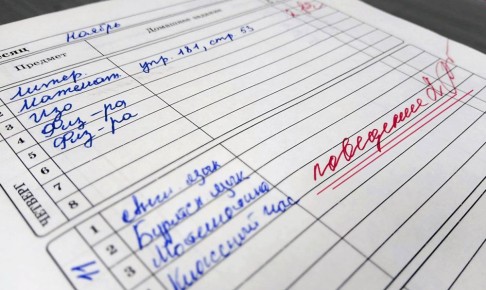 есяц Ноябрь
Предмет Домашнее задание
Литер
2 Математ. упр. стр. 53
3 Изо
4 Физ-ра
5 Физ-ра
6
7
8
ЧЕТВЕРГ
поведение
1 Англ-язык
2 Бурятск язык
3 Математика
Классный час
11